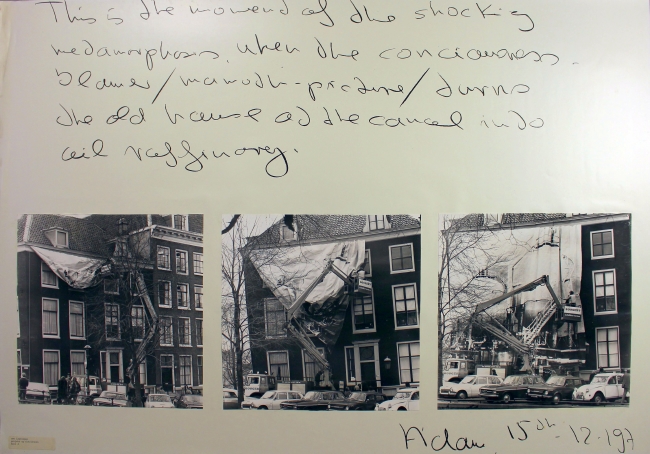 This is the moment of the shocking
metamorphosis, when the conciousness
blamer/mamoth-picture/turns
the old house at the canal into
oil raffinory.
A'dam, 15th-12-197